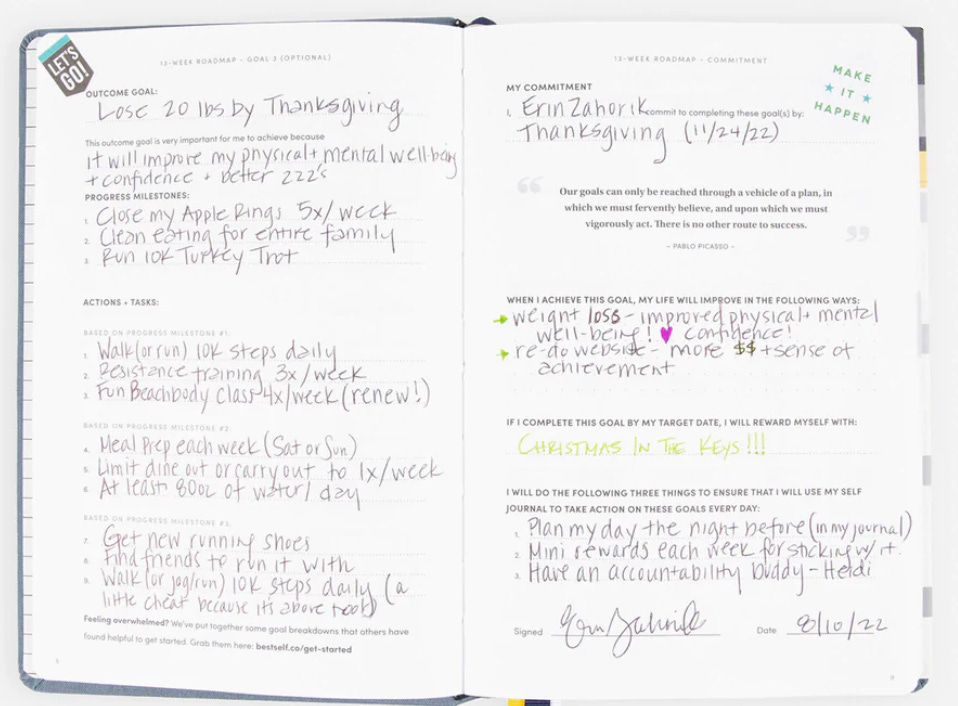 LET'S
GO!
13-WEEK ROADMAP - GOAL 3 (OPTIONAL)
OUTCOME GOAL:
Lose 20 lbs by Thanksgiving
This outcome goal is very important for me to achieve because
it will improve my physical + mental well-being
+ confidence + better zzz's
PROGRESS MILESTONES:
1. Close my Apple Rings 5x/week
2. Clean eating for entire family
3. Run 10K Turkey Trot
ACTIONS + TASKS:
BASED ON PROGRESS MILESTONE #1:
1. Walk (or run) 10K steps daily
2. Resistance training 3x/week
3. Fun Beachbody Class 4x/week (renew!)
BASED ON PROGRESS MILESTONE #2:
4. Meal Prep each week (Sat or Sun)
5. Limit dine out or carry out to 1x/week
6. At least 80oz of water/day
BASED ON PROGRESS MILESTONE #3:
7. Get new running shoes
8. Find friends to run it with
9. Walk (or jog/run) 10K steps daily (a
little cheat because it's above too)
Feeling overwhelmed? We've put together some goal breakdowns that others have
found helpful to get started. Grab them here: bestself.co/get-started
13-WEEK ROADMAP - COMMITMENT
MAKE
IT
HAPPEN
MY COMMITMENT
I, Erin Zahorik commit to completing these goal(s) by:
Thanksgiving (11/24/22)
“ Our goals can only be reached through a vehicle of a plan, in
which we must fervently believe, and upon which we must
vigorously act. There is no other route to success. ”
– PABLO PICASSO –
WHEN I ACHIEVE THIS GOAL, MY LIFE WILL IMPROVE IN THE FOLLOWING WAYS:
→ weight loss - improved physical + mental
well-being! ♥ confidence!
→ re-do website - more $$ + sense of
achievement
IF I COMPLETE THIS GOAL BY MY TARGET DATE, I WILL REWARD MYSELF WITH:
CHRISTMAS IN THE KEYS!!!
I WILL DO THE FOLLOWING THREE THINGS TO ENSURE THAT I WILL USE MY SELF
JOURNAL TO TAKE ACTION ON THESE GOALS EVERY DAY:
1. Plan my day the night before (in my journal)
2. Mini rewards each week for sticking w/ it.
3. Have an accountability buddy - Heidi
Signed Erin Zahorik Date 8/10/22